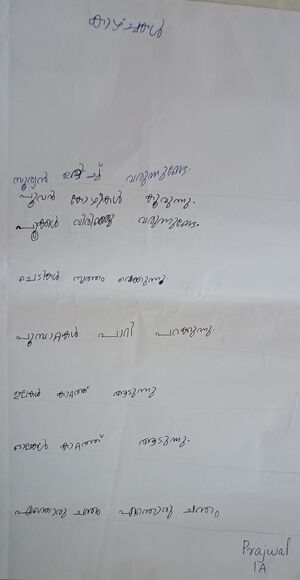 സൂര്യൻ ഉദിച്ച് വരുന്നുണ്ടേ.
പൂവൻ കോഴികൾ കൂവുന്നു.
പൂക്കൾ വിരിഞ്ഞു വരുന്നുണ്ടേ.
ചെടികൾ നൃത്തം വെക്കുന്നു.
പൂമ്പാറ്റകൾ പാറി പറക്കുന്നു
ഇലകൾ കാറ്റത്ത് ആടുന്നു
ഓലകൾ കാറ്റത്ത് ആടുന്നു.
എന്തൊരു ചന്തം എന്തൊരു ചന്തം
Prajwal
1A